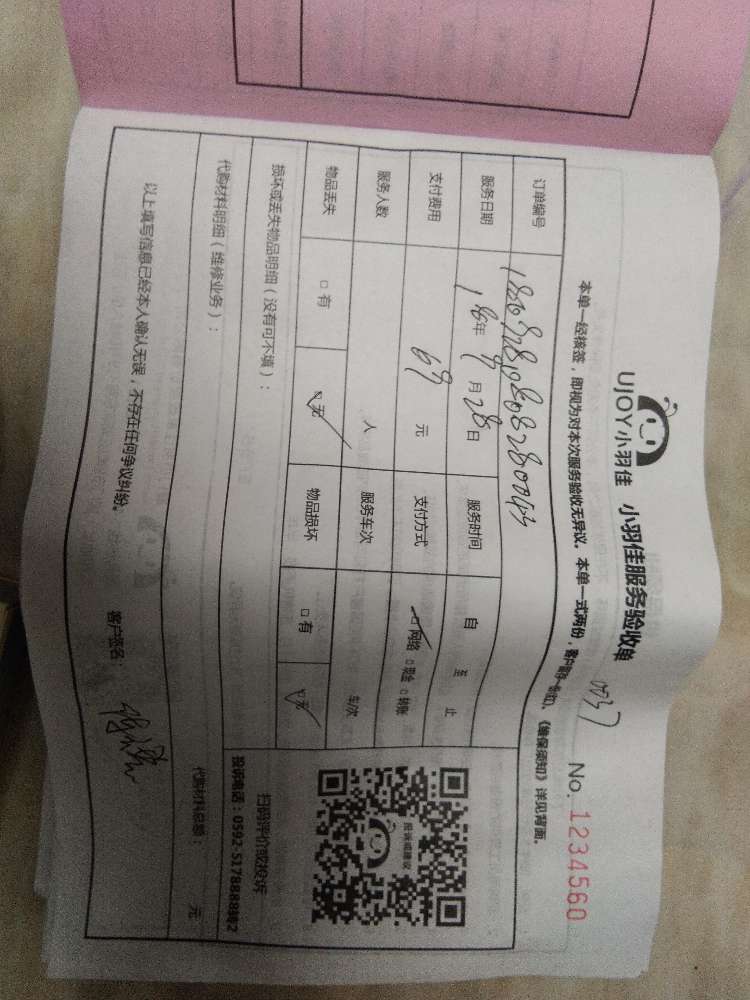 UJOY小羽佳 小羽佳服务验收单
0037
No. 1234560
本单一经核签，即视为对本次服务验收无异议。本单一式两份，《维保须知》详见背面。
订单编号
服务日期 18年 9月 28日 服务时间 自 至 止
支付费用 69 元 支付方式 ☑网络 □现金 □转账
服务人数 人 服务车次 车次
物品丢失 □有 ☑无 物品损坏 □有 ☑无
损坏或丢失物品明细（没有可不填）：
代购材料明细（维修业务）： 代购材料总额： 元
以上填写信息已经本人确认无误，不存在任何争议纠纷。 客户签名：
投诉或建议
扫码评价或投诉
投诉电话：0592-5178888转2